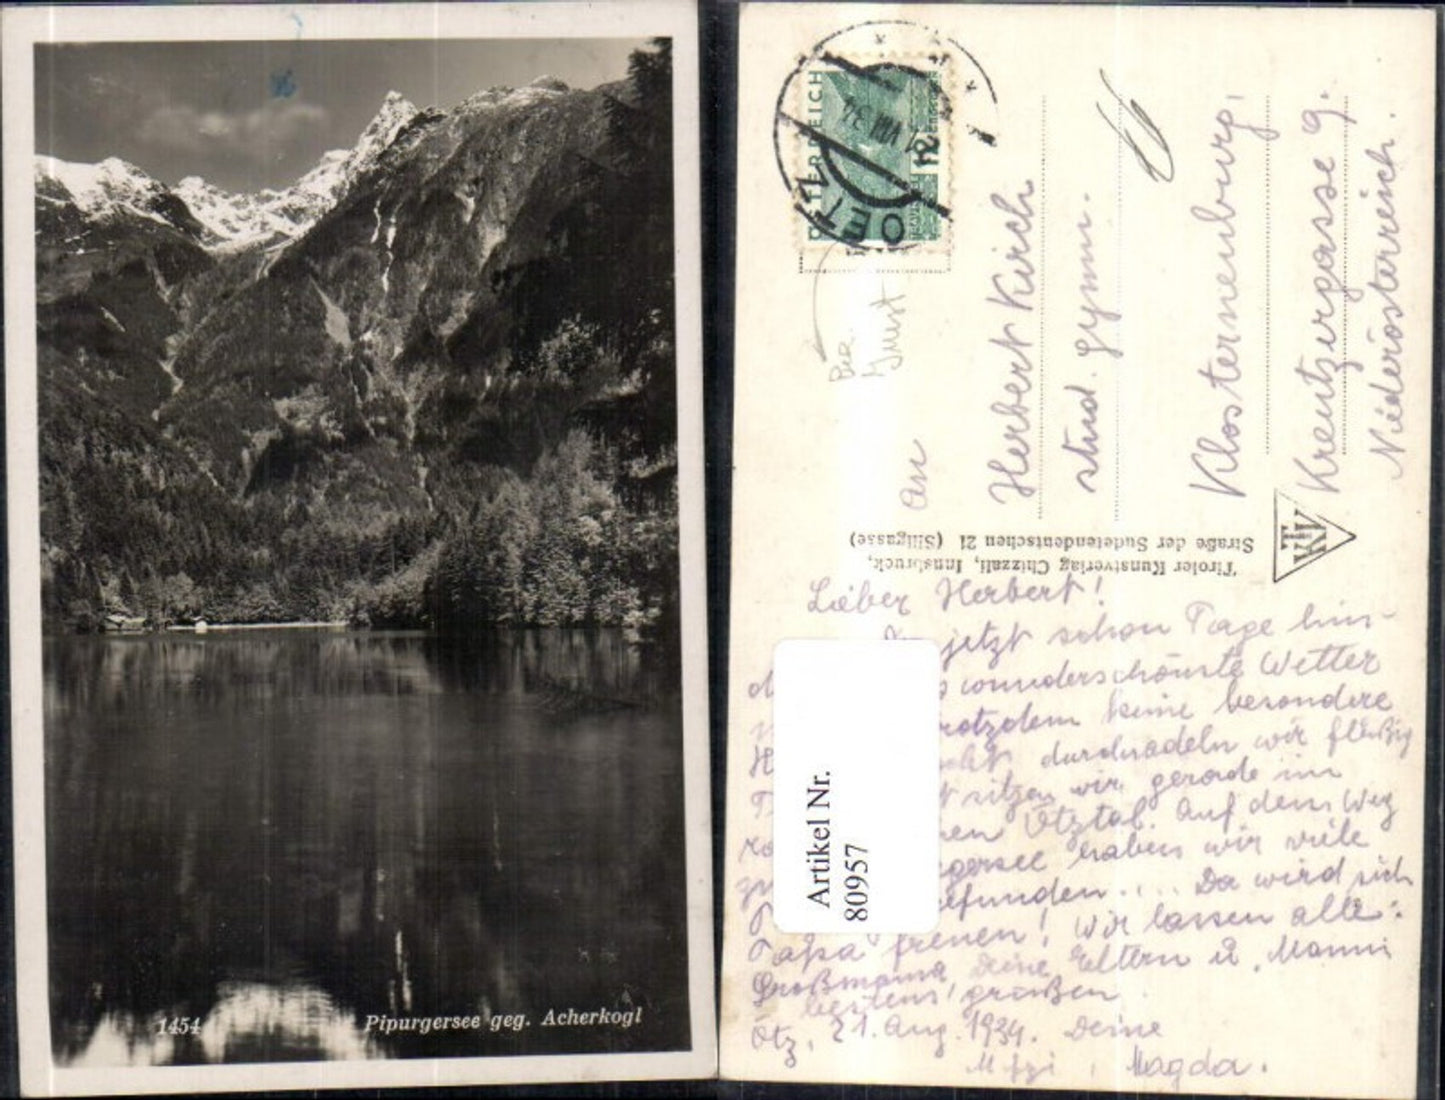 1454
Pipurgersee geg. Acherkogl
OETZ
VIII 34
24
An
Herbert Kirch
stud. gymn.
Klosterneuburg,
Kreutzergasse 9.
Niederösterreich.
Tiroler Kunstverlag Chizzali, Innsbruck,
Straße der Sudetendeutschen 21 (Sillgasse)
Lieber Herbert!
jetzt schon Tage hin-
wunderschönste Wetter
trotzdem keine besondere
durchradeln wir fleißig
sitzen wir gerade im
Ötztal. Auf dem Weg
haben wir viele
gefunden.... Da wird sich
Papa freuen! Wir lassen alle:
Großmama, Deine Eltern u. Manni
bestens grüßen
Ötz, 21. Aug. 1934. Deine
Mizi, Magda.
Artikel Nr.
80957